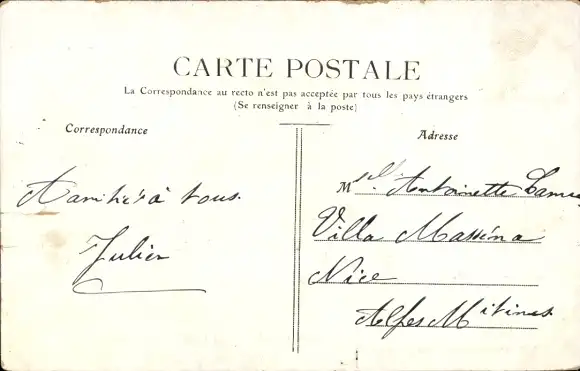 CARTE POSTALE
La Correspondance au recto n'est pas acceptée par tous les pays étrangers
(Se renseigner à la poste)
Correspondance
Adresse
à tous.
Julien
Mlle. Antoinette
Villa Masséna
Nice
Alpes Mitimes